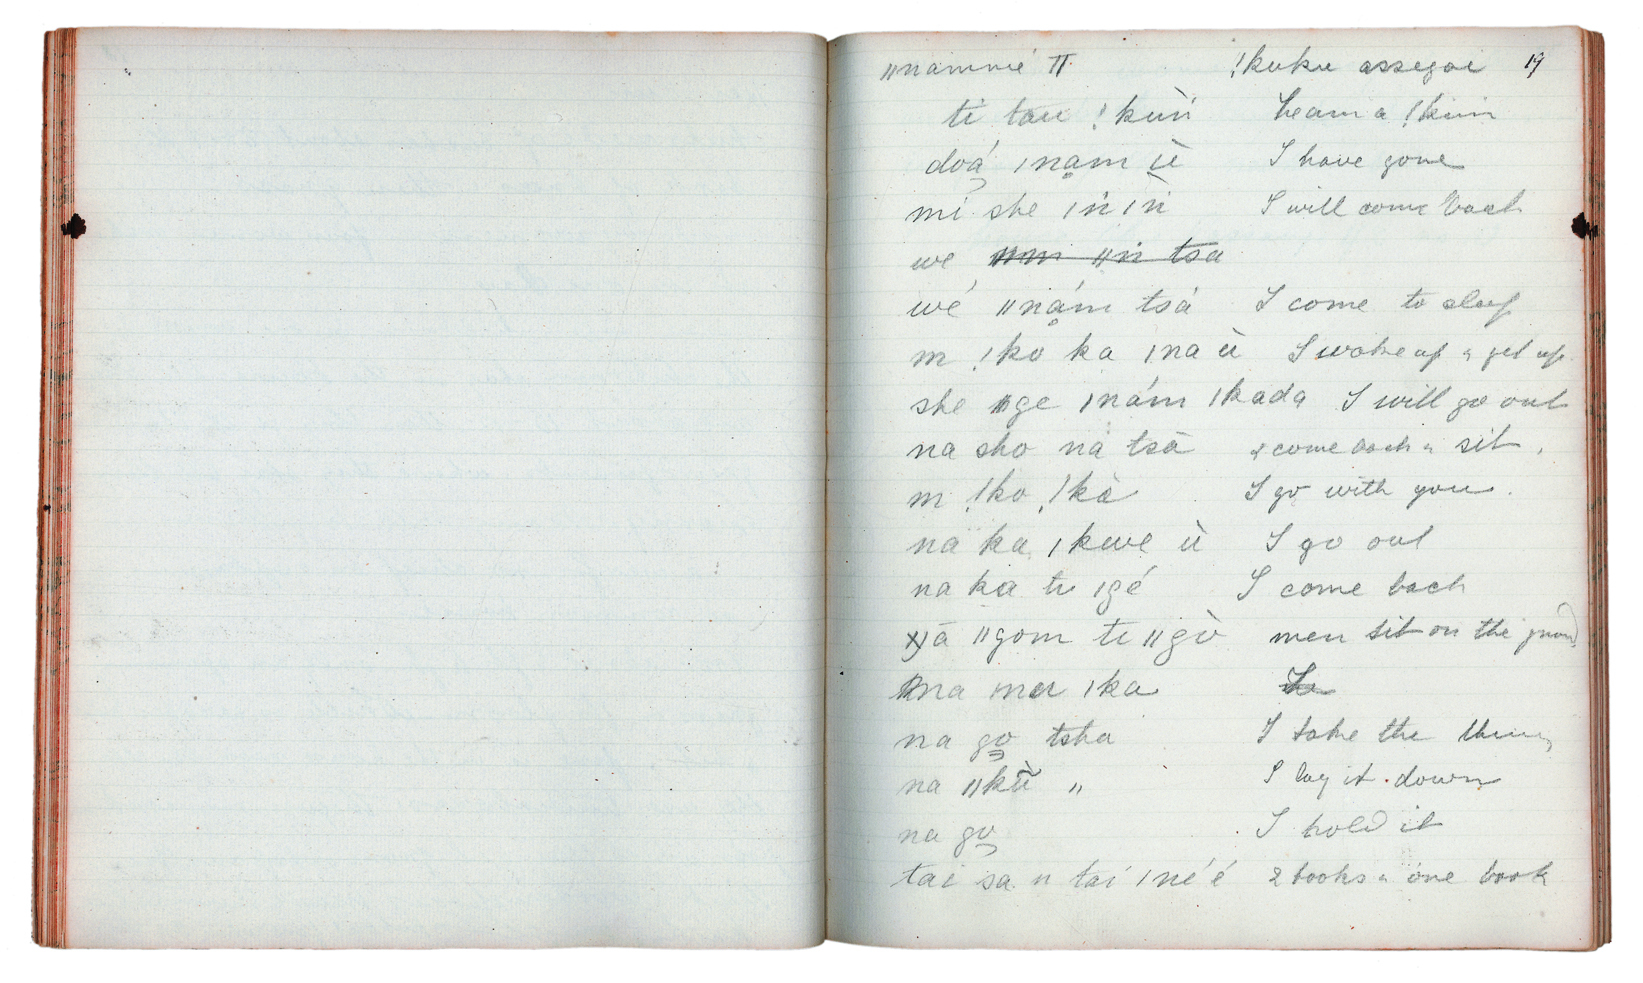 ǁnamnié TT !kuku assegai 19
ti tau !kùǹ he am a !kun
doá ǀnam ù I have gone
mi she ǀǹ ǀǹ I will come back
we ǁm ǁǹ tsa
wé ǁnám tsá I come to sleep
m !ko ka ǀna ù I wake up & get up.
she ǁge ǀnám ǀkada I will go out
na sho na tsā & come back & sit.
m !ko !kà I go with you.
na ka ǀkwe ù I go out
na ka ti ǀgé I come back
ā ǁgom ti ǁgò men sit on the ground
na ǀka
na go tsha I take the thing
na ǁkù̃ " I lay it down
na go I hold it
tai sa n tai ǀné'é 2 books & one book